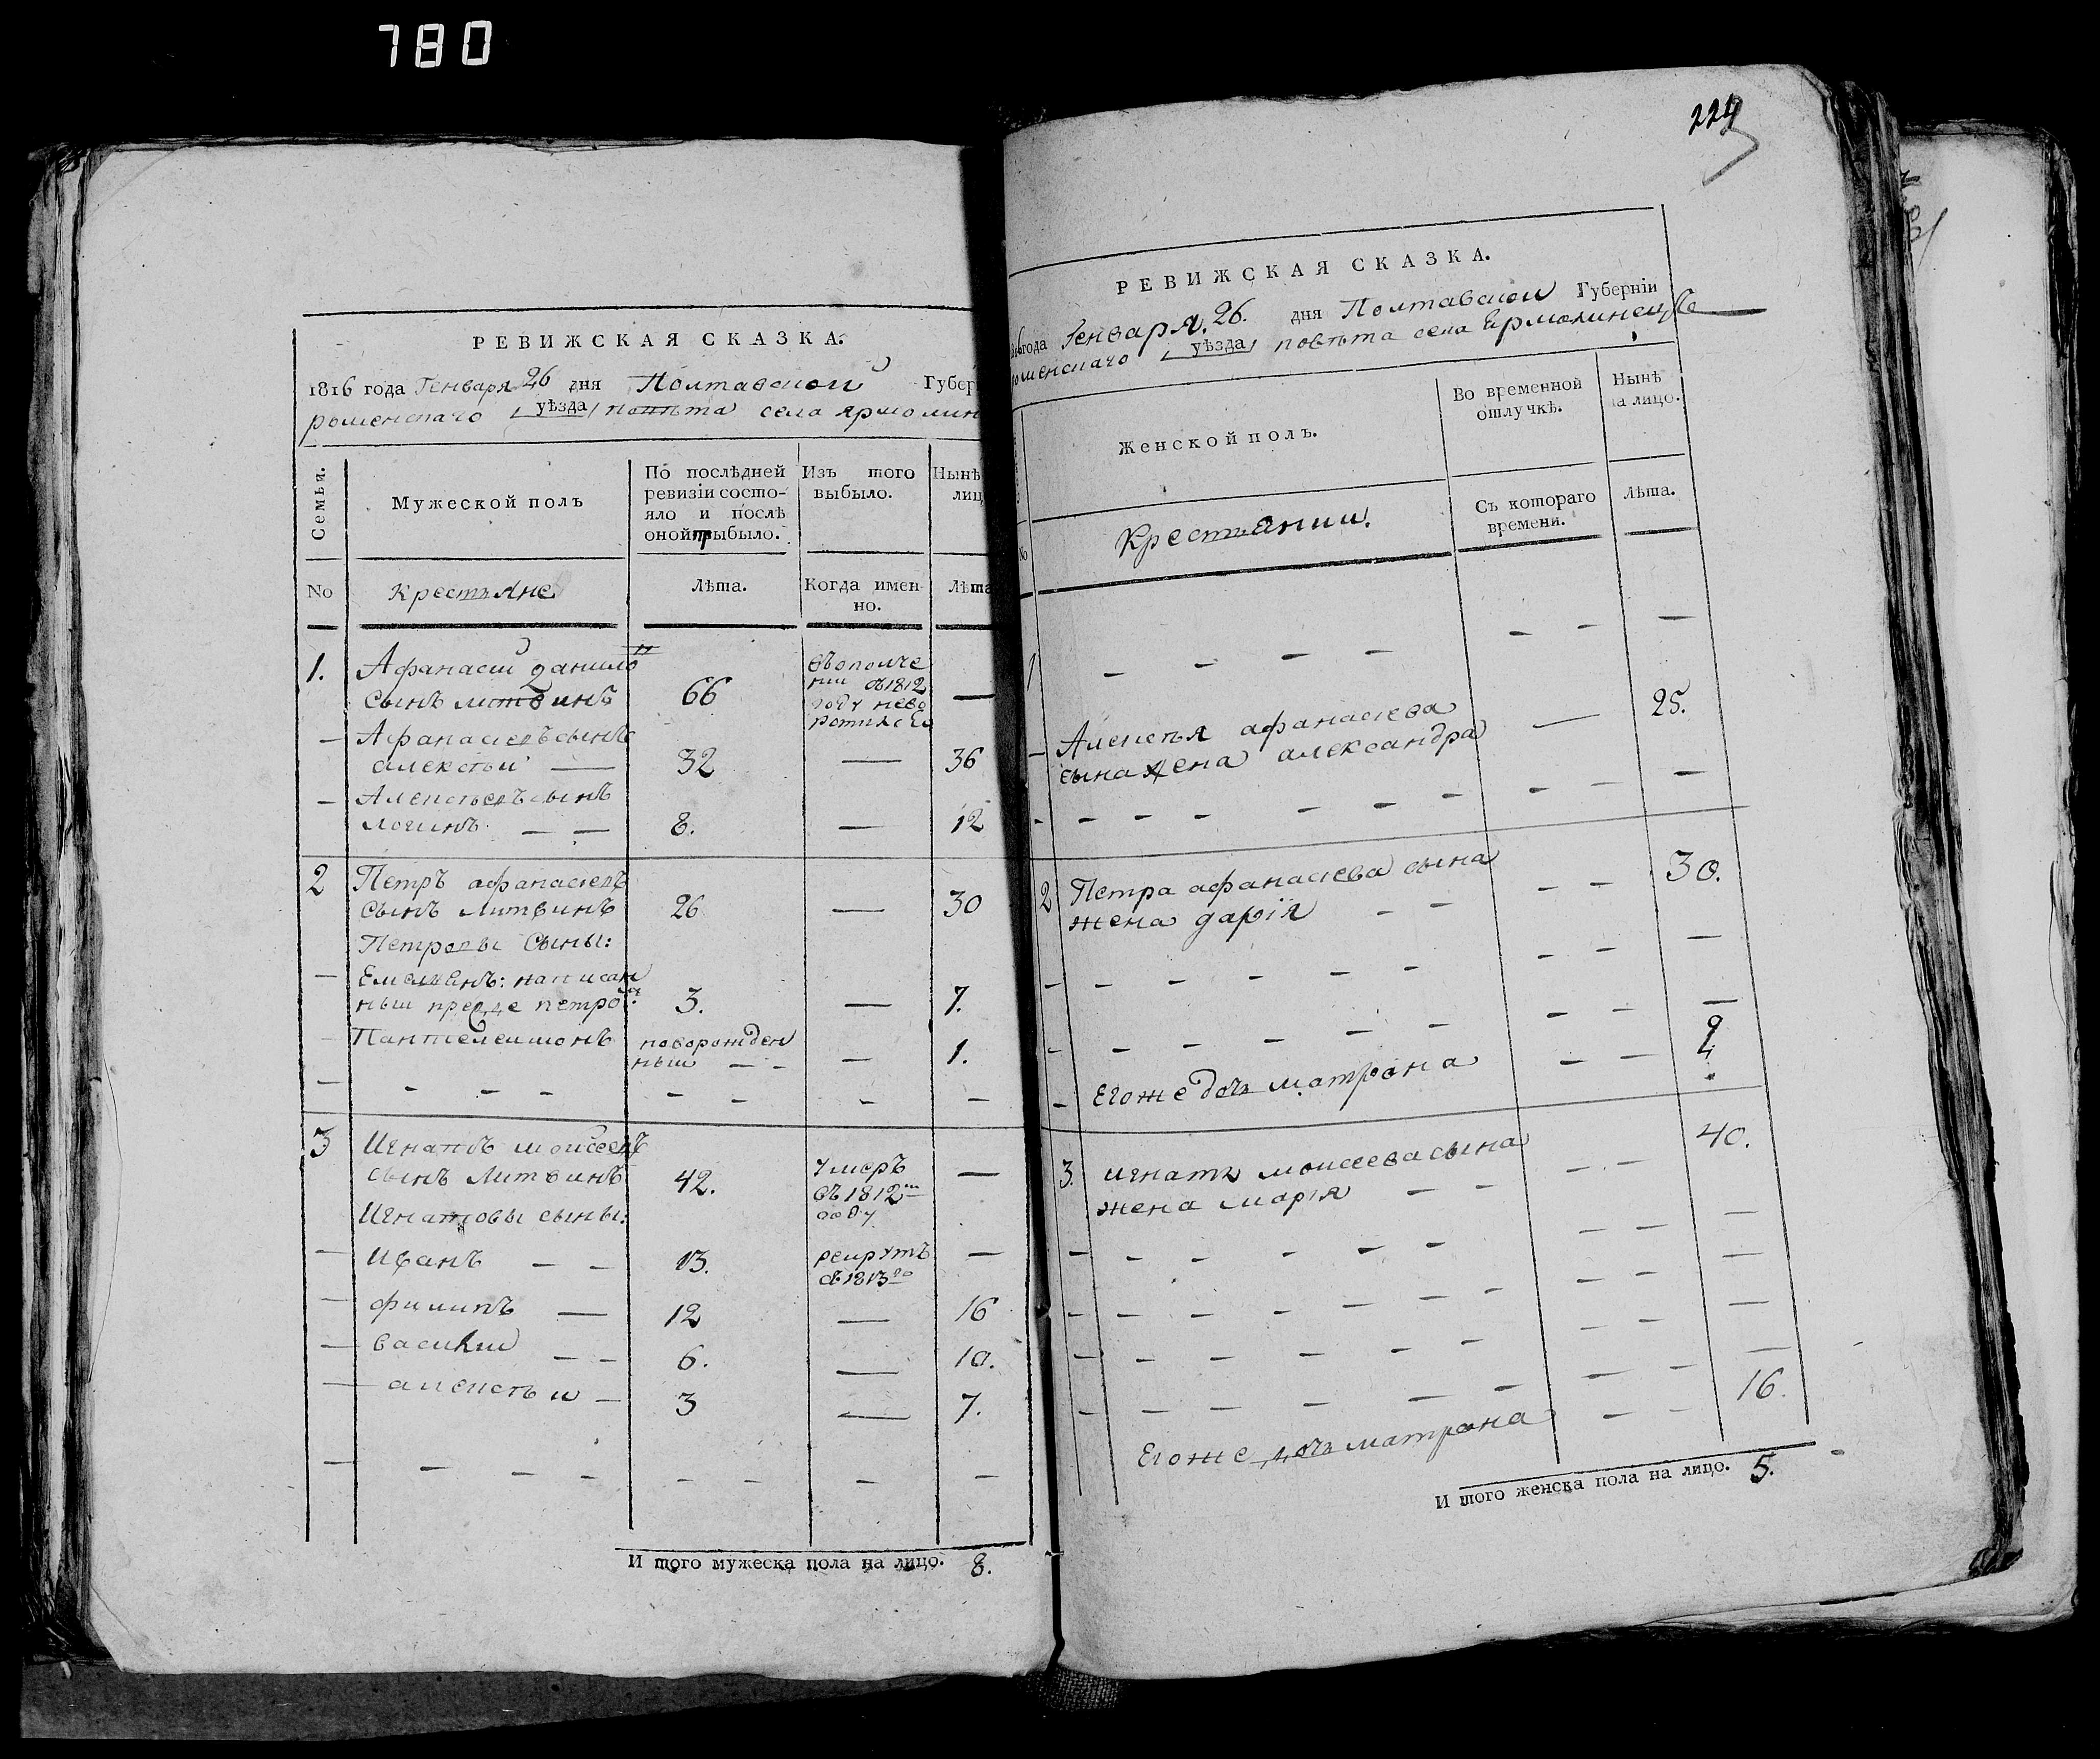 780
РЕВИЖСКАЯ СКАЗКА.
1816 года Генваря 26 дня Полтавской Губер
роменскаго уѣзда повѣта села ярмолин
Семьи.
Мужеской полъ
По послѣдней ревизіи состо-
яло и послѣ
оной прибыло.
Изъ того
выбыло.
Нынѣ
лиц
No
крестьяне
Лѣта.
Когда имен
но.
Лѣта
1. Афанасий данило
сынъ литвинъ 66 въополче
нии въ1812
году нево
ротился —
— Афанасиевъ сынъ
алексѣй — 32 — 36
— Алексѣевъ сынъ
логинъ — — 8. — 12
2 Петръ афанасиевъ
сынъ литвинъ 26 — 30
Петровы сыны:
— Емельянъ: написан
ный прежде петро 3. — 7.
Пантелеимонъ новорожден
ный — - — 1.
3 Игнатъ моисеевъ
сынъ Литвинъ 42. умеръ
въ1812м
году —
Игнатовы сыны:
— иванъ — — 13. рекрутъ
въ1813го —
— филипъ — 12 — 16
— василий — - 6. — 10.
— алексѣй — 3 — 7.
И того мужеска пола на лицо. 8.
224
РЕВИЖСКАЯ СКАЗКА.
года Генваря. 26. дня Полтавской Губерніи
роменскаго уѣзда повѣта села Ермолинецъ
Женской полъ.
Во временной
отлучкѣ.
Нынѣ
на лицо.
No
Крестьянки.
Съ котораго
времени.
Лѣта.
1 - — —
— Алексѣя афанасиева
сына жена александра — 25.
2 Петра афанасиева сына
жена дарія - - — — 30.
- Егоже дочь матрона — —
3. игната моисеева сына
жена марія — — 40.
Егоже дочь матрона — - 16.
И того женска пола на лицо. 5.